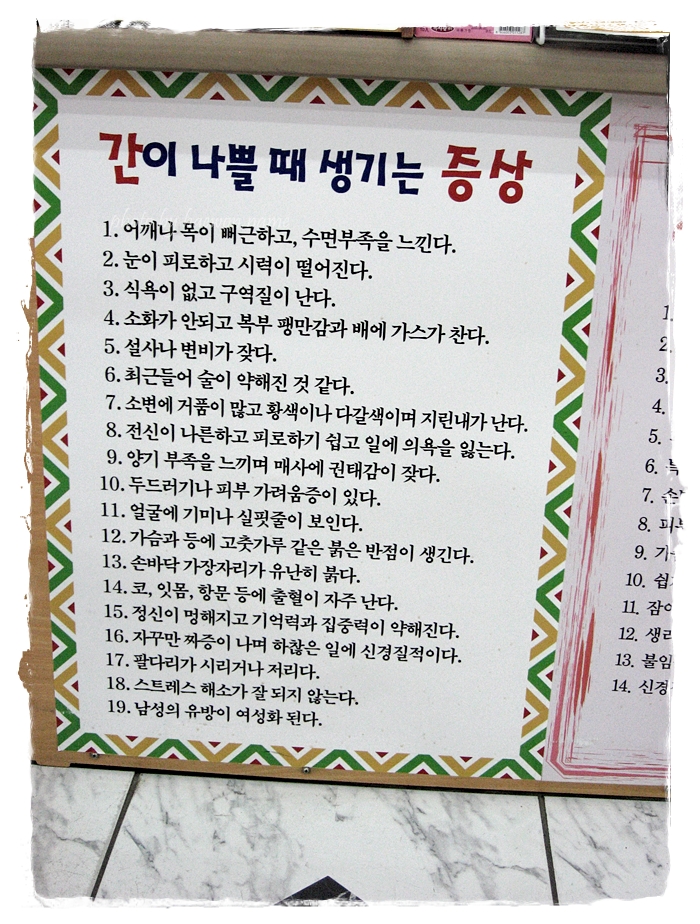 간이 나쁠 때 생기는 증상
1. 어깨나 목이 뻐근하고, 수면부족을 느낀다.
2. 눈이 피로하고 시력이 떨어진다.
3. 식욕이 없고 구역질이 난다.
4. 소화가 안되고 복부 팽만감과 배에 가스가 찬다.
5. 설사나 변비가 잦다.
6. 최근들어 술이 약해진 것 같다.
7. 소변에 거품이 많고 황색이나 다갈색이며 지린내가 난다.
8. 전신이 나른하고 피로하기 쉽고 일에 의욕을 잃는다.
9. 양기 부족을 느끼며 매사에 권태감이 잦다.
10. 두드러기나 피부 가려움증이 있다.
11. 얼굴에 기미나 실핏줄이 보인다.
12. 가슴과 등에 고춧가루 같은 붉은 반점이 생긴다.
13. 손바닥 가장자리가 유난히 붉다.
14. 코, 잇몸, 항문 등에 출혈이 자주 난다.
15. 정신이 멍해지고 기억력과 집중력이 약해진다.
16. 자꾸만 짜증이 나며 하찮은 일에 신경질적이다.
17. 팔다리가 시리거나 저리다.
18. 스트레스 해소가 잘 되지 않는다.
19. 남성의 유방이 여성화 된다.
1.
2.
3.
4.
5.
6.
7.
8. 피부
9.
10.
11. 잠이
12. 생리
13. 불임
14. 신경